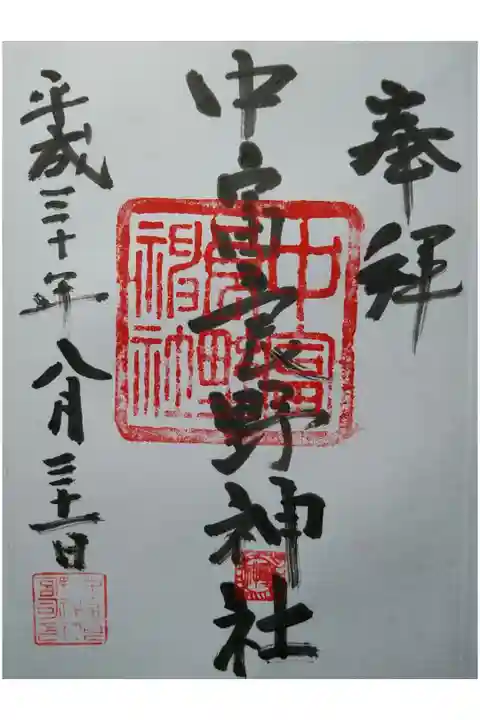 奉拝
中富良野神社
平成三十年八月三十一日
中富
良野
神社